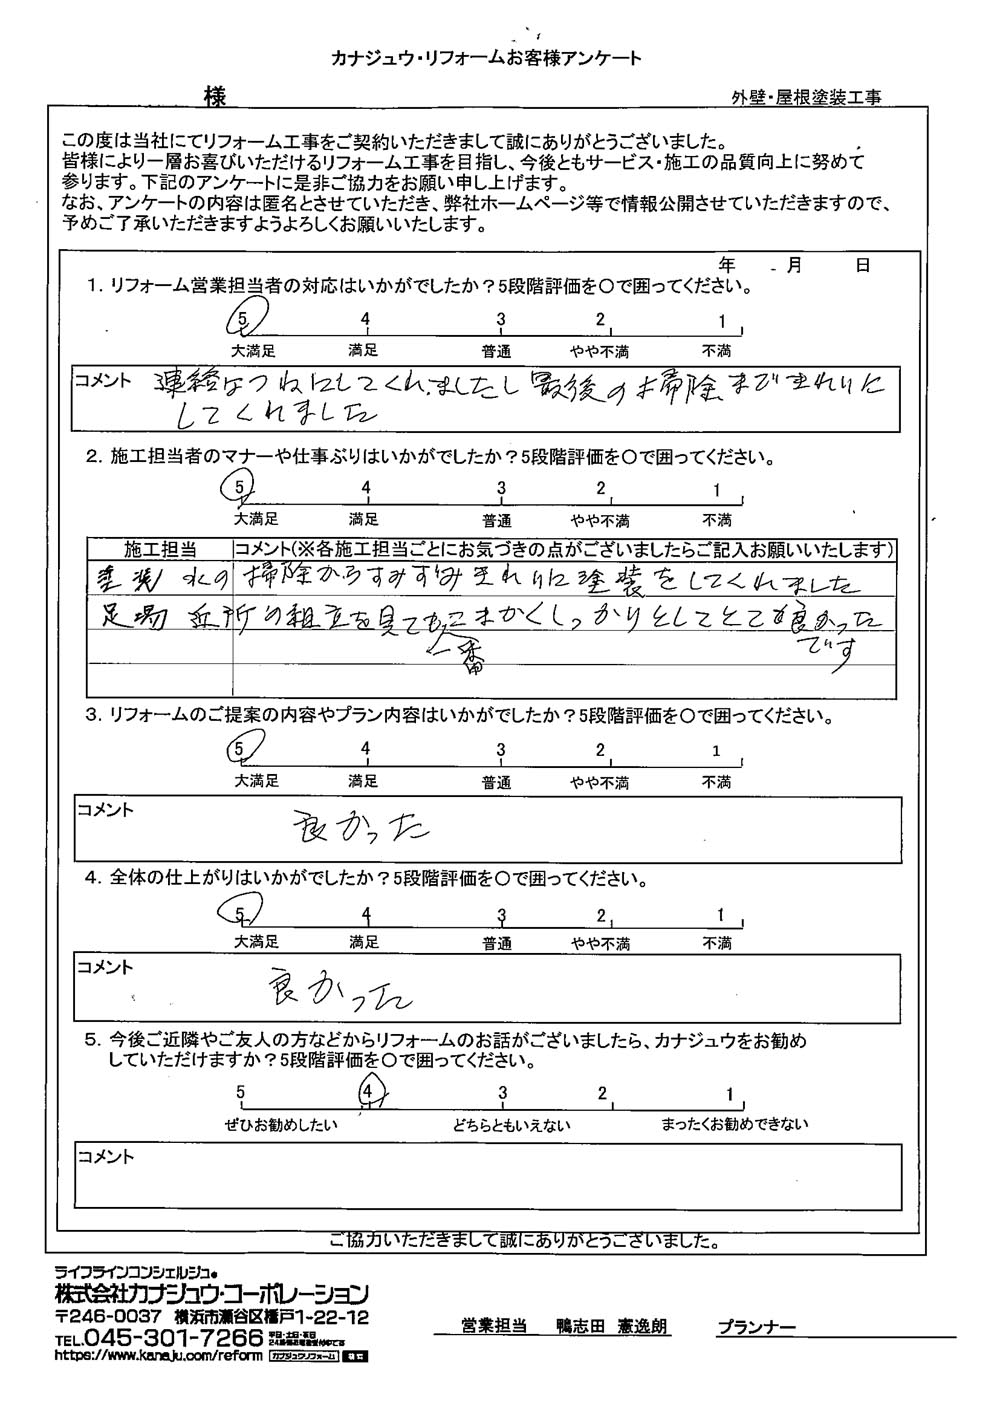 カナジュウ・リフォームお客様アンケート
様
外壁・屋根塗装工事
この度は当社にてリフォーム工事をご契約いただきまして誠にありがとうございました。
皆様により一層お喜びいただけるリフォーム工事を目指し、今後ともサービス・施工の品質向上に努めて
参ります。下記のアンケートに是非ご協力をお願い申し上げます。
なお、アンケートの内容は匿名とさせていただき、弊社ホームページ等で情報公開させていただきますので、
予めご了承いただきますようよろしくお願いいたします。
年 月 日
1. リフォーム営業担当者の対応はいかがでしたか？5段階評価を〇で囲ってください。
5 4 3 2 1
大満足 満足 普通 やや不満 不満
コメント 連絡はつねにしてくれましたし最後のお掃除まできれいに
してくれました
2. 施工担当者のマナーや仕事ぶりはいかがでしたか？5段階評価を〇で囲ってください。
5 4 3 2 1
大満足 満足 普通 やや不満 不満
施工担当 コメント(※各施工担当ごとにお気づきの点がございましたらご記入お願いいたします)
塗装 水の掃除からすみずみきれいに塗装をしてくれました
足場 近所の組立を見ても一番こまかくしっかりとしてとても良かった
です
3. リフォームのご提案の内容やプラン内容はいかがでしたか？5段階評価を〇で囲ってください。
5 4 3 2 1
大満足 満足 普通 やや不満 不満
コメント
良かった
4. 全体の仕上がりはいかがでしたか？5段階評価を〇で囲ってください。
5 4 3 2 1
大満足 満足 普通 やや不満 不満
コメント
良かった
5. 今後ご近隣やご友人の方などからリフォームのお話がございましたら、カナジュウをお勧め
していただけますか？5段階評価を〇で囲ってください。
5 4 3 2 1
ぜひお勧めしたい どちらともいえない まったくお勧めできない
コメント
ご協力いただきまして誠にありがとうございました。
ライフラインコンシェルジュ
株式会社カナジュウ・コーポレーション
〒246-0037 横浜市瀬谷区橋戸1-22-12
TEL.045-301-7266
https://www.kanaju.com/reform カナジュウリフォーム 検索
営業担当 鴨志田 憲逸朗
プランナー